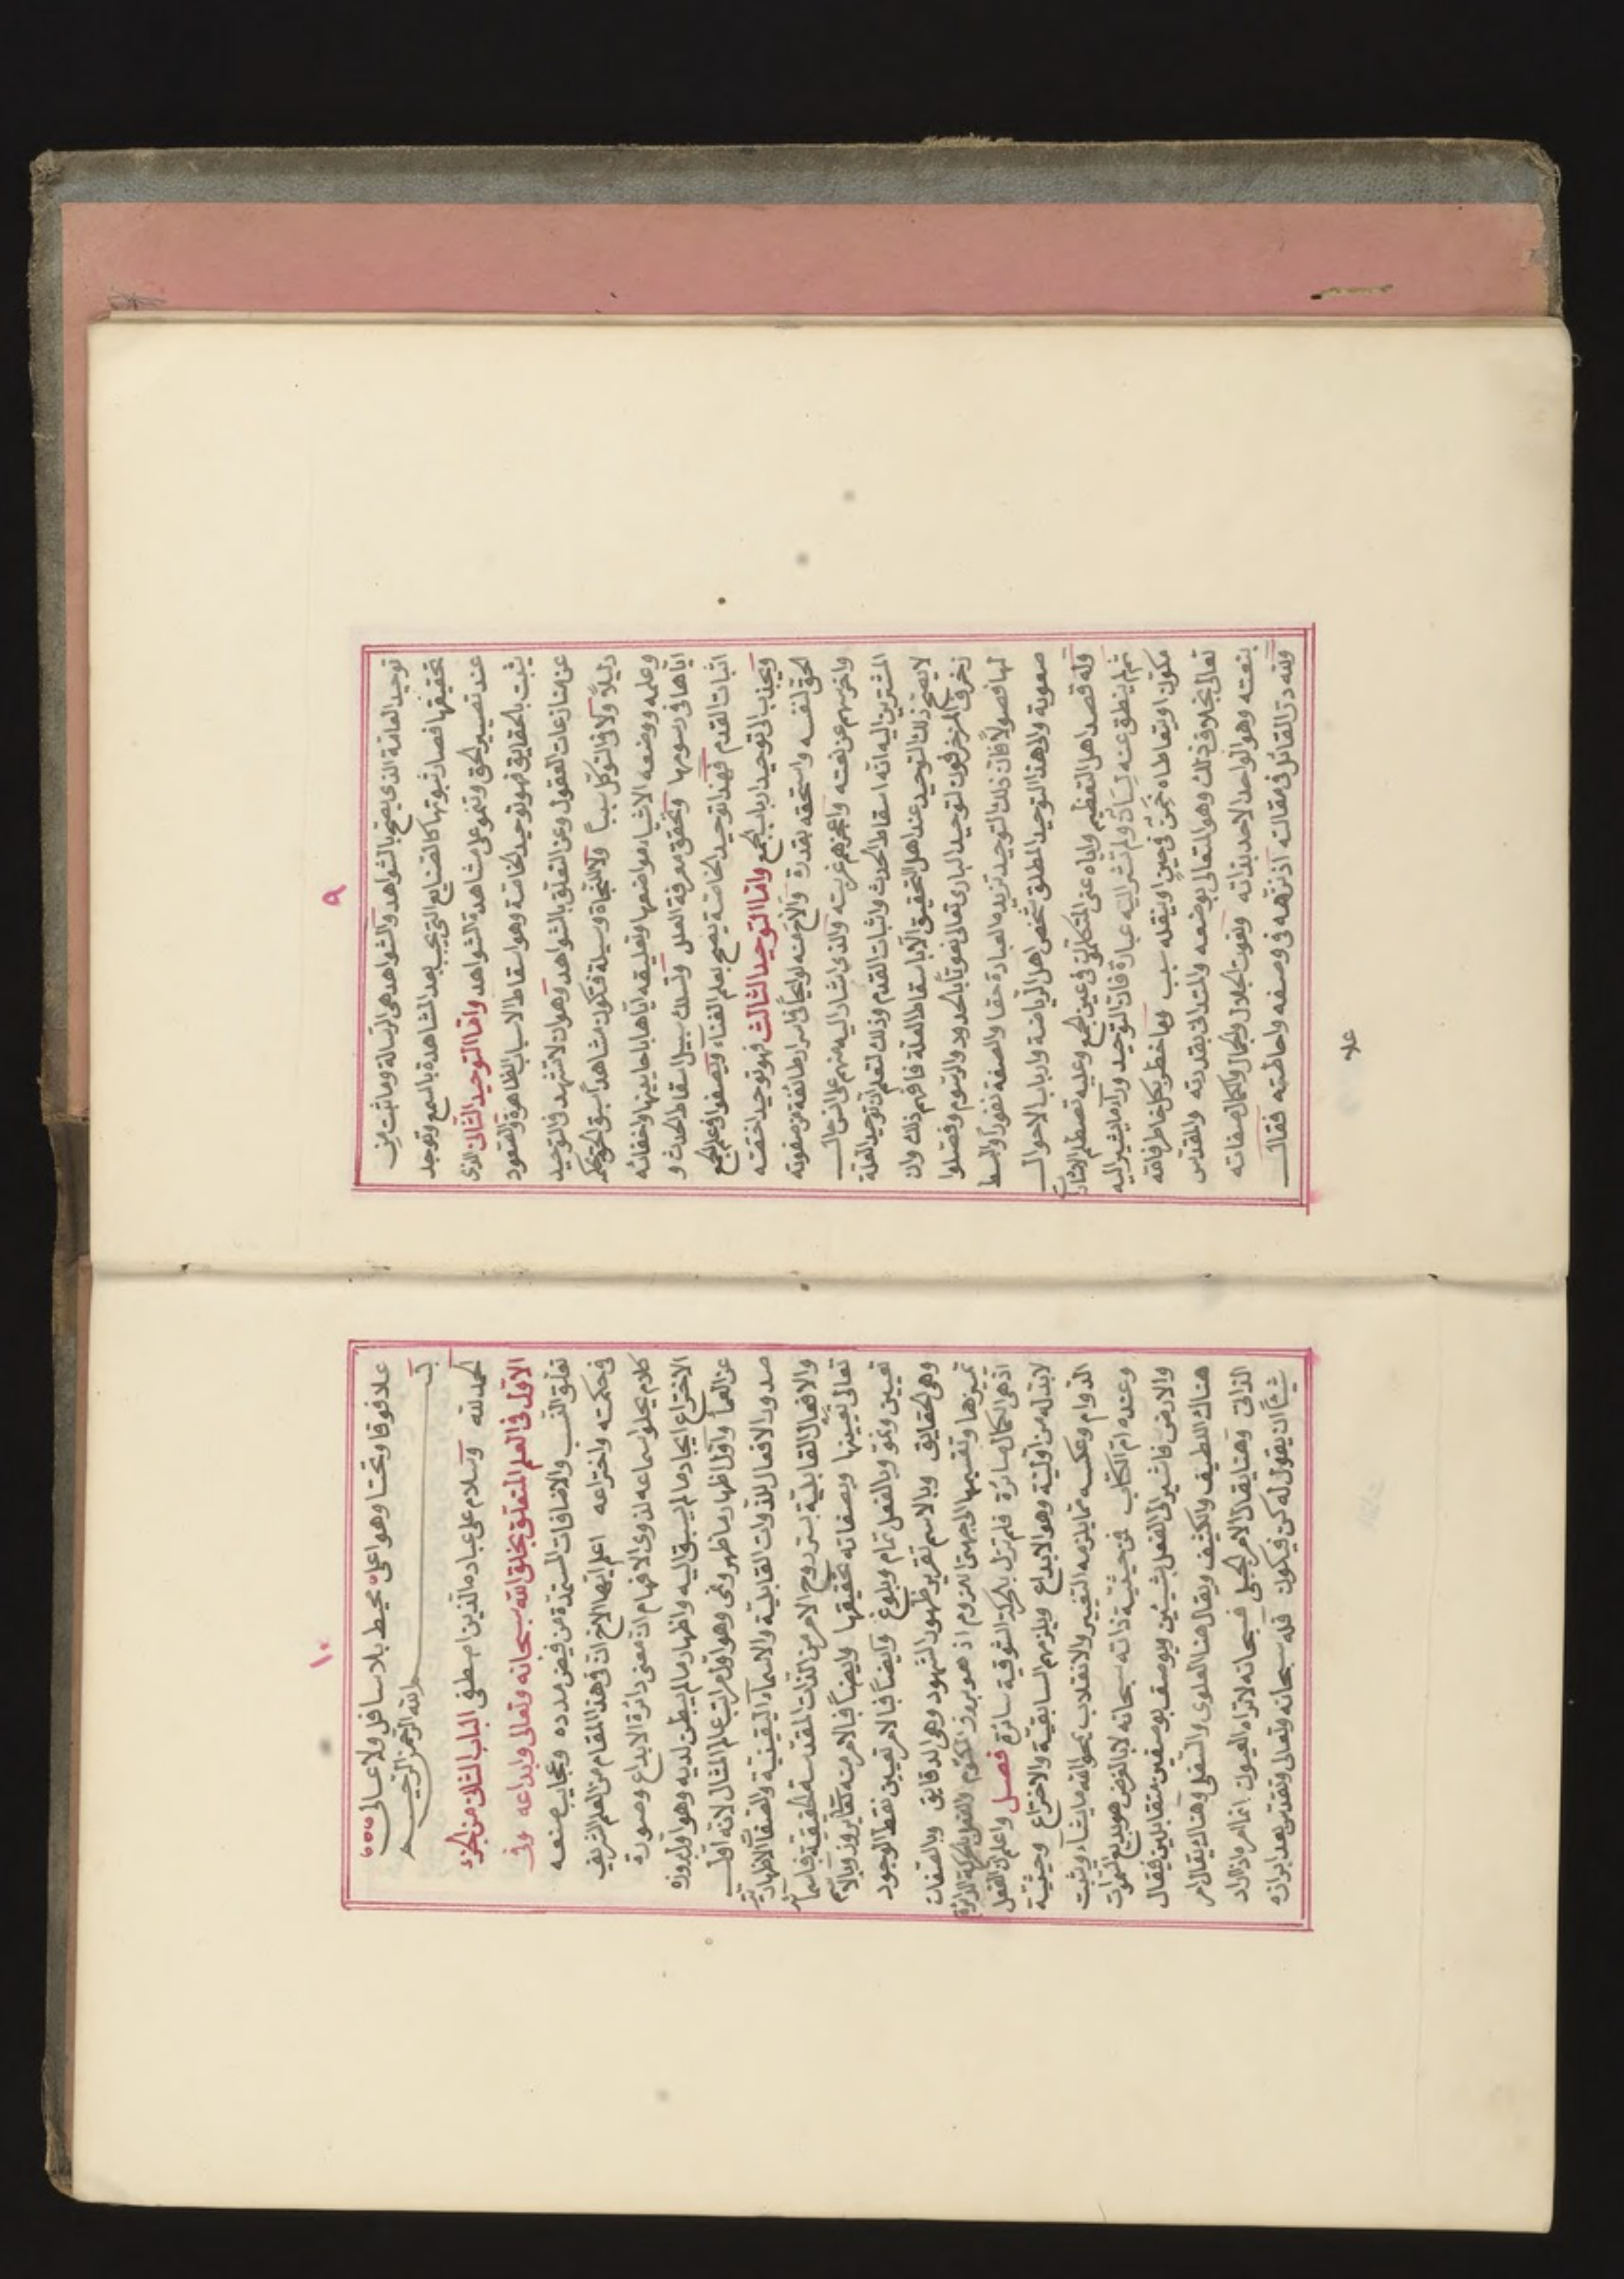 ٩
توحيد العامة الذى يصح بالشواهد والشواهد هى الرسالة وما ثبت من
تحقيقها فصار ثبوتها كالصنايع التى يجب بعد المشاهدة بالسمع وتوجد
عند تبصير الحق وتنمو على مشاهدة الشواهد واما التوحيد الثانى الذى
يثبت بالحقايق فهو توحيد الخاصة وهو اسقاط الاسباب الظاهرة والصعود
عن منازعات العقول وعن التعلق بالشواهد وهو ان لا تشهد فى التوحيد
دليلاً ولا فى التوكل سبباً ولا للنجاة وسيلة فتكون مشاهداً سبق الحق بحكمه
وعلمه ووضعه الاشياء مواضعها وتعليقه اياها باحايينها واخفائه
اياها فى رسومها وتحقق معرفة العلل وتسلك سبيل اسقاط الحدث و
اثبات القدم فهذا توحيد الخاصة يصح بعلم الفناء ويصفو فى علم الجمع
ويجذب الى توحيد ارباب الجمع واما التوحيد الثالث فهو توحيد اختصه
الحق لنفسه واستحقه بقدره والاح منه لوايحاً الى اسرار طائفة من صفوته
واخرسهم عن نعته واعجزهم عن بثه والذى اشار اليه منهم على السن
المشيرين اليه انه اسقاط الحدث واثبات القدم وذلك لتعلم ان توحيد العلة
لا يصح ذلك التوحيد عند اهل التحقيق الا باسقاط العلة فافهم ذلك وان
زخرف المزخرفون لتوحيد البارى تعالى نعوتاً بالحدود والرسوم وفصلوا
لها فصولاً فان ذلك التوحيد تزيده العبارة خفا والصفة نفوراً والبسط
صعوبة والى هذا التوحيد المطلق شخص اهل الرياضة وارباب الاحوال
وله قصد اهل التعظيم واياه عنى المتكلمون فى عين الجمع وعليه تصطلم الاشارات
ثم لم ينطق عنه لسان ولم تشر اليه عبارة فان التوحيد وراء ما يشير اليه
مكون او يتعاطاه حين او يقله سبب وما خطر بكل خاطر فالله
تعالى بخلاف ذلك وهو المتعالى بوضعه والمتدانى بقدرته والمقدس
بنعته وهو الواحد الاحد بذاته ونعوت الجلال والجمال والكمال صفاته
ولله در القائل فى مقالته اذ نزهه فى وصفه واحاطته فقال
علا
١٠
علا فوقا وتحتا وهو اعلى محيط بلا سافل ولا عالى
بسم الله الرحمن الرحيم
الحمد لله وسلام على عباده الذين اصطفى الباب الثانى من الجزء
الاول فى العلم المتعلق بخلق الله سبحانه وتعالى وابداعه وفى
تعلق النسب والاضافات المستمدة من فيض مدده وعجايب صنعه
فى حكمته واختراعه اعلم ايها الاخ ان فى هذا المقام من العلم الشريف
كلام يحلو سماعه لذوى الافهام ان معنى دائرة الابداع وصورة
الاختراع ايجاد ما لم يسبق اليه واظهار ما لم يبطن لديه وهو اول بروزه
عن العما واول اظهار ما ظهر ونمى وهو اول مراتب عالم المثال لانه اول
صدور الافعال للذوات القابلية والاسماء اليقينية والصفات الاظهارية
والافعال القابلية بستر روح الامر من الذات المقدسة الحقيقة فاسمائه
تعالى تعيينها وبصفاته تحقيقها وايضاً فالامر منه تعالى بروز وبالاسم
تعيين ونمو وبالفعل تمام وبلوغ وايضاً فالامر تعيين نقط الوجود
وهى الحقايق وبالاسم تقرير ظهور الشهود وهى الدقايق وبالصفات
تميزها وتقسيمها الى جهتى اللزوم اذ هو بروز المكتوم والفعل بحركة الدائرة
اذ هى الكمال سائرة فلم تزل بالحركة الشوقية سائرة فصل واعلم ان الفعل
لابد له من اولية وهو الابداع ويلزمه السابقية والاختراع وحيثية
الدوام وعكسه مما يلزمه التغيير والانقلاب يمحو الله ما يشاء ويثبت
وعنده ام الكتاب فمن حيثية ذاته سبحانه لا بالعرض هو بديع السموات
والارض فاشير الى الفعل بشيئين ويوصف بوصفين متقابلين فيقال
هناك اللطيف والكثيف ويقال هنا العلوى والسفلى وهناك يقال الامر
الذاتى وهنا يقال الامر الجبلى فسبحانه لا تراه العيون انما امره اذا اراد
شيئاً ان يقول له كن فيكون فله سبحانه وتعالى وتقدس بعد ابرازه